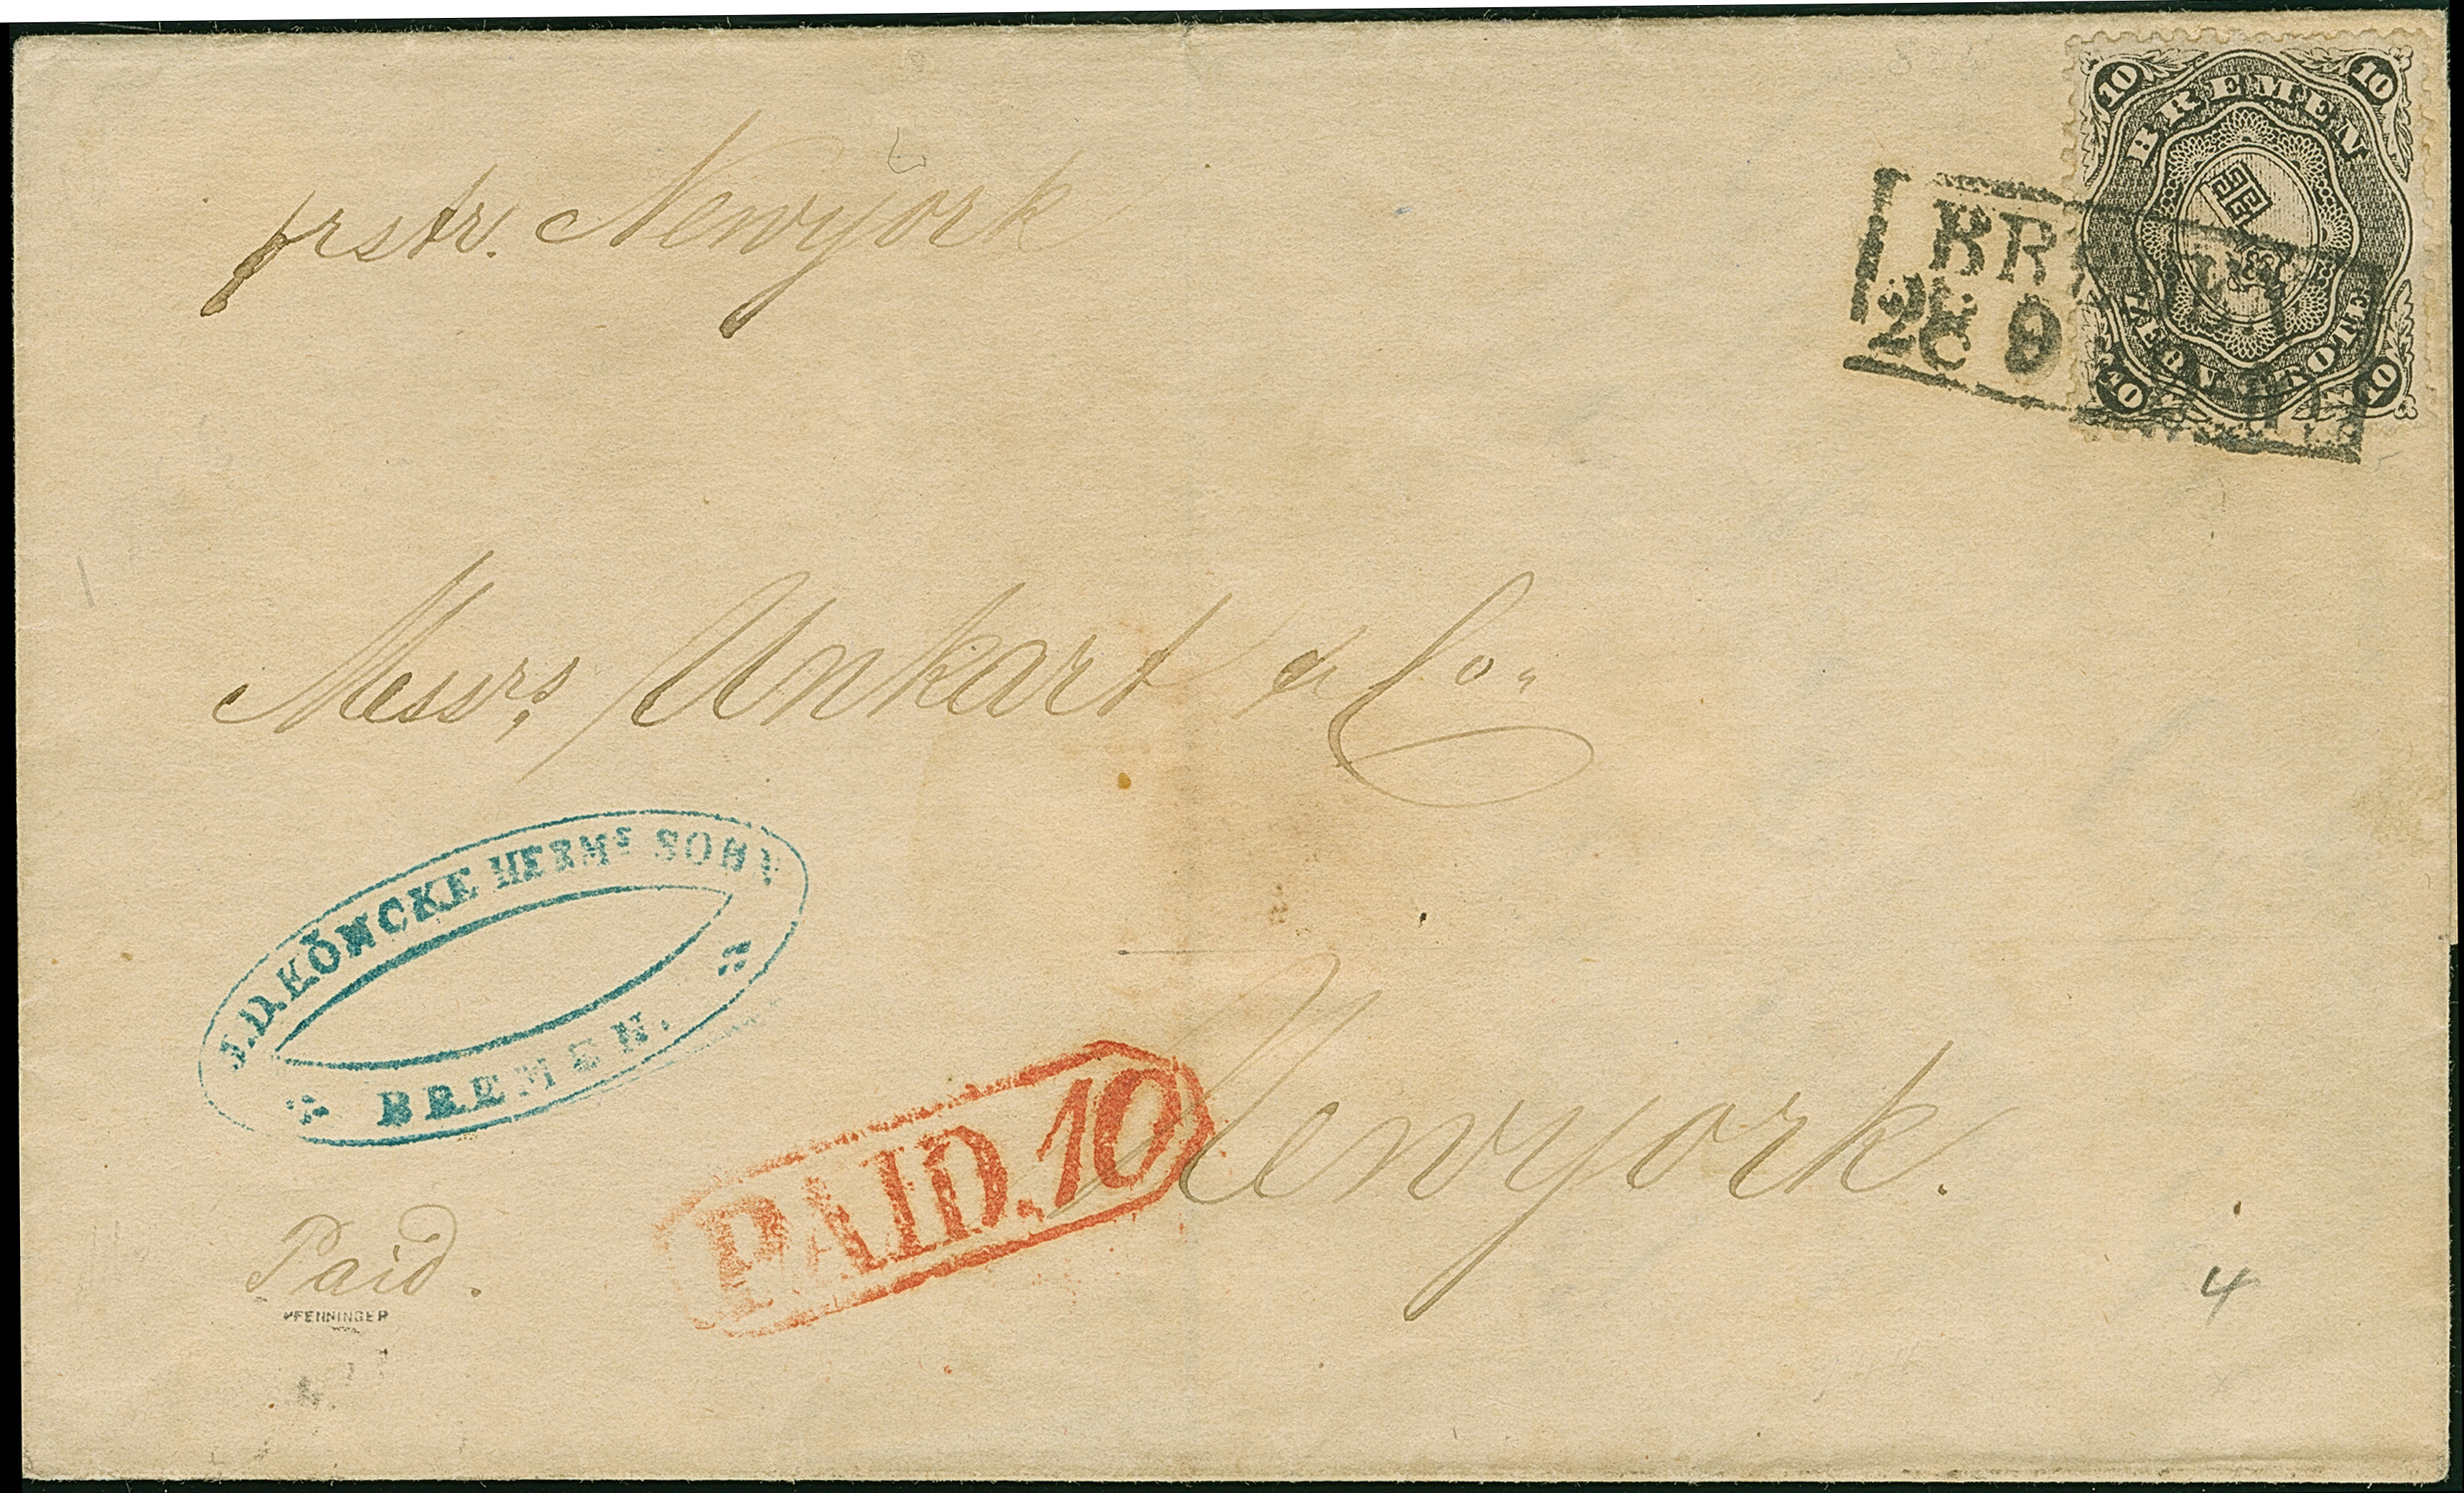 prstr. Newyork
10 10
BREMEN
ZEHN GROTE
10 10
BR
28 9
Messrs. Unkart & Co.
J.D.KÖNCKE HERMS SOHN
BREMEN.
PAID.10
Newyork.
Paid.
PFENNINGER
4